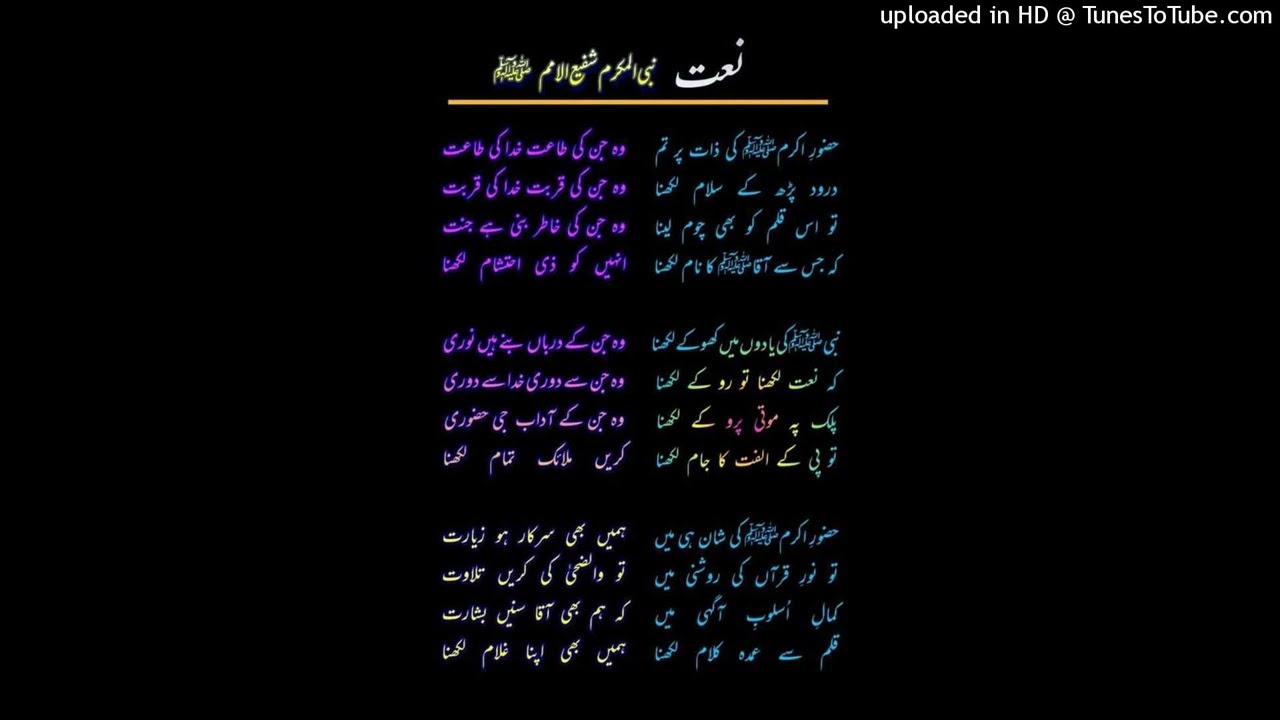 uploaded in HD @ TunesToTube.com
نعت نبی المکرم شفیع الامم ﷺ
حضورِ اکرم ﷺ کی ذات پر تم
درود پڑھ کے سلام لکھنا
تو اس قلم کو بھی چوم لینا
کہ جس سے آقا ﷺ کا نام لکھنا
وہ جن کی طاعت خدا کی طاعت
وہ جن کی قربت خدا کی قربت
وہ جن کی خاطر بنی ہے جنت
انہیں کو ذی احتشام لکھنا
نبی ﷺ کی یادوں میں کھو کے لکھنا
کہ نعت لکھنا تو رو کے لکھنا
پلک پہ موتی پرو کے لکھنا
تو پی کے الفت کا جام لکھنا
وہ جن کے درباں بنے ہیں نوری
وہ جن سے دوری خدا سے دوری
وہ جن کے آداب جی حضوری
کریں ملائک تمام لکھنا
حضورِ اکرم ﷺ کی شان ہی میں
تو نورِ قرآں کی روشنی میں
کمالِ اُسلوبِ آگہی میں
قلم سے عمدہ کلام لکھنا
ہمیں بھی سرکار ہو زیارت
تو والضحیٰ کی کریں تلاوت
کہ ہم بھی آقا سنیں بشارت
ہمیں بھی اپنا غلام لکھنا